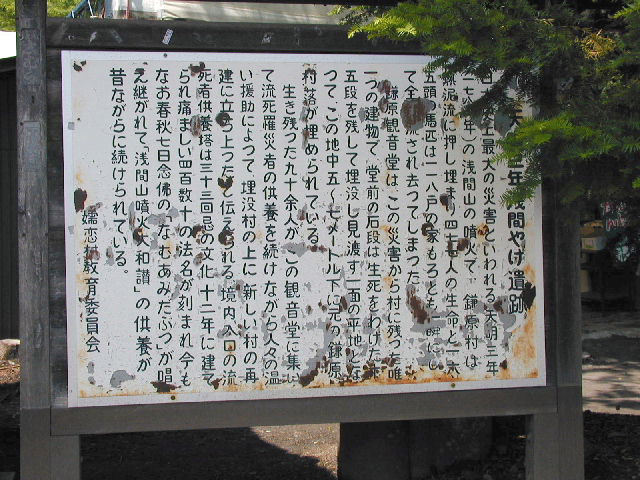 天 三年浅間やけ遺跡
史上最大の災害といわれる天明三年
一七八 年への浅間山の噴火で 鎌原村は
熱泥流に押し埋まり四七七人の生命と一六
五頭の馬匹は一一八戸の家もろとも一瞬にし
て全 流され去つてしまつた
鎌原観音堂は この災害から村に残つた唯
一つの建物で、堂前の石段は生死をわけた十
五段を残して埋没し見渡す一面の平地とな
つて この地中五 七メートル下に元の鎌原
村落が埋められている。
生き残つた九十余人が この観音堂に集い
て流死罹災者の供養を続けながら人々の温
い援助によつて 埋没村の上に 新しい村の再
建に立ち上つたと伝えられる 境内入口の流
死者供養塔は三十三回忌の文化 十二年に建て
られ痛ましい四百数十の法名が刻まれ今も
なお春秋七日念佛の なむあみだぶつ が唱
え継がれて、浅間山噴火大和讃」の供養が
昔ながらに続けられている。
嬬恋村教育委員会